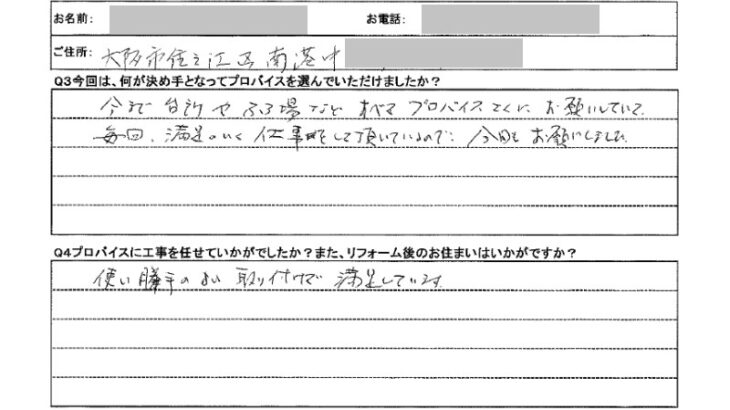 お名前: お電話:
ご住所: 大阪市住之江区南港中
Q3今回は、何が決め手となってプロバイスを選んでいただけましたか？
今まで台所やふろ場などすべてプロバイスさんにお願いしていて
毎回、満足のいく仕事をして頂いているので、今回もお願いしました。
Q4プロバイスに工事を任せていかがでしたか？また、リフォーム後のお住まいはいかがですか？
使い勝手のよい取り付けで満足しています。